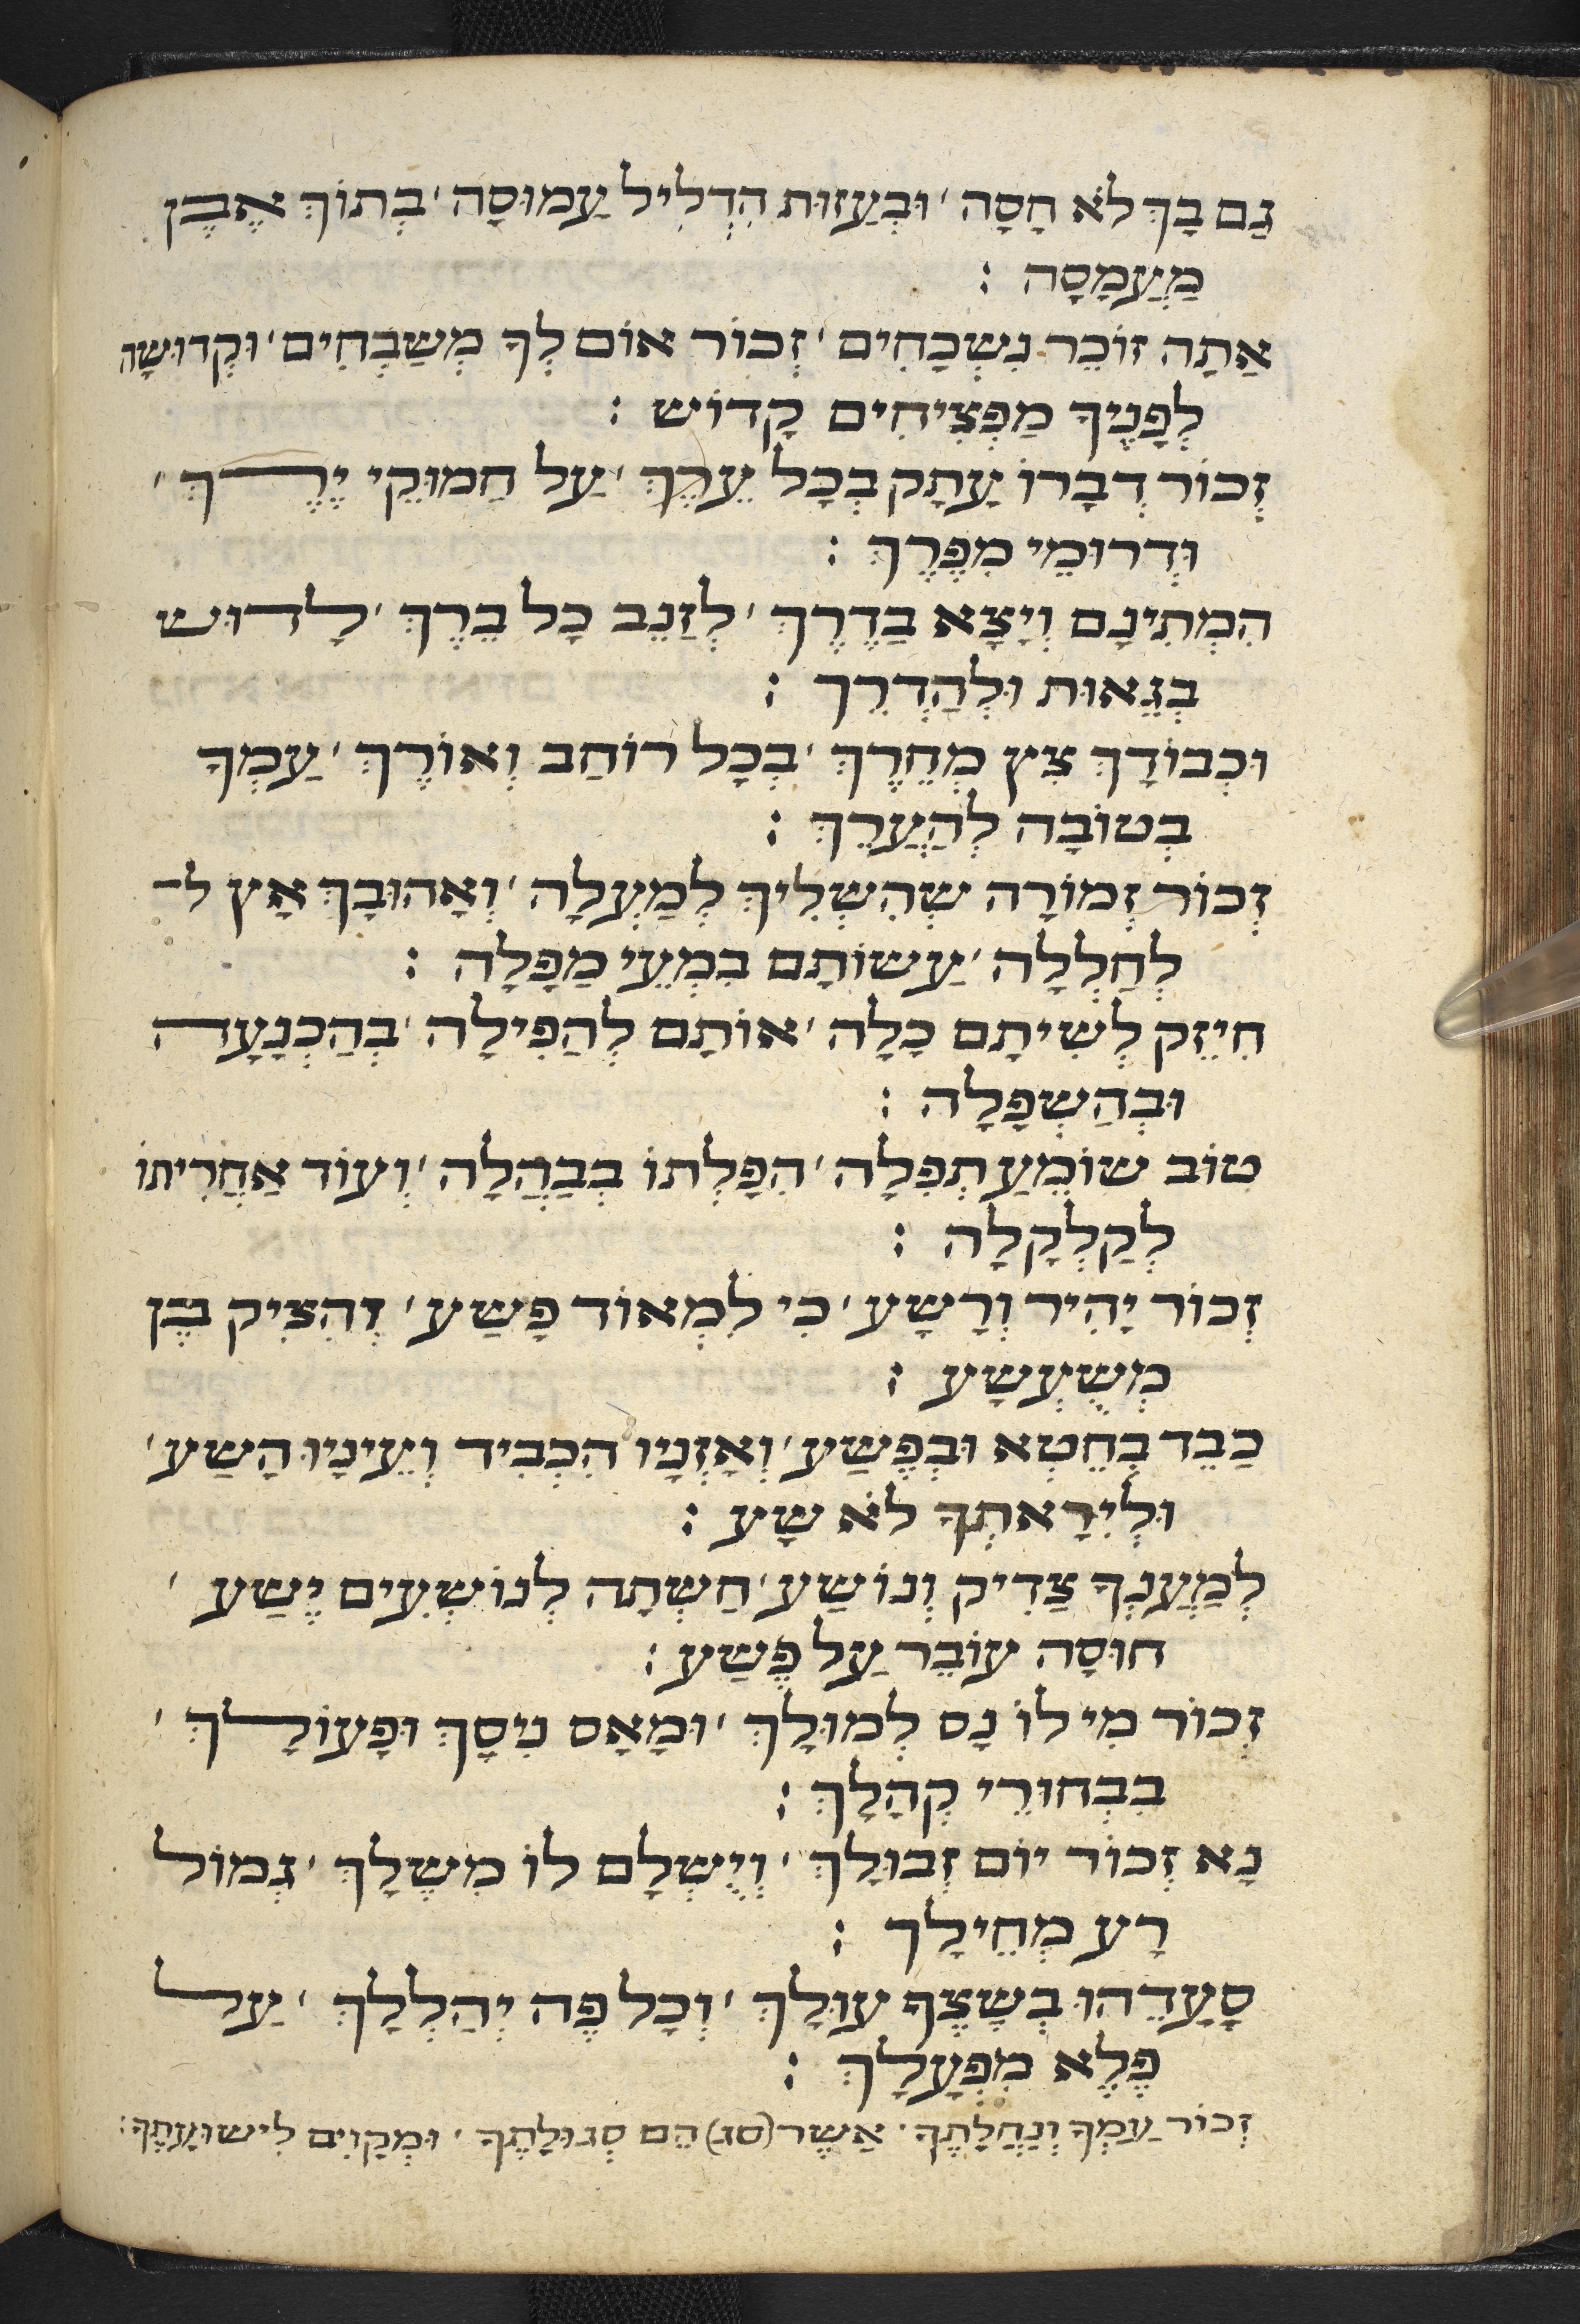 גַם בָךְ לֹא חָסָה ׳ וּבְעַזוּת הִדְלִיל עַמוּסָה ׳ בְתוֹךְ אֶבֶן
מַעֲמָסָה :
אַתָה זוֹכֵר נִשְכָחִים ׳ זְכוֹר אוֹם לְךָ מְשַבְחִים ׳ וּקְדוּשָה
לְפָנֶיךָ מַפְצִיחִים קָדוֹש :
זְכוֹר דְבָרוֹ עָתָק בְכָל עֵרֶךְ ׳ עַל חַמוּקֵי יֶרֶךְ ׳
וּדְרוּמֵי מִפֶרֶךְ :
הִמְתִינָם וְיָצָא בַדֶרֶךְ ׳ לְזַנֵב כָל בֵרֶךְ ׳ לָדוּש
בְגֵאוּת וּלְהַדְרֵךְ :
וּכְבוֹדָךְ צִץ מְחֵרֶךְ ׳ בְכָל רוֹחַב וְאוֹרֶךְ ׳ עַמְךָ
בְטוֹבָה לְהַעֲרֵךְ :
זְכוֹר זְמוֹרָה שֶהִשְלִיךְ לְמַעְלָה ׳ וְאָהוּבָךְ אָץ ל־
לְחַלְלָה ׳ עַשוֹתָם בִמְעֵי מַפָלָה :
חִיזֵק לְשִיתָם כָלָה ׳ אוֹתָם לְהַפִילָה ׳ בְהַכְנָעָה
וּבְהַשְפָלָה :
טוֹב שוֹמֵעַ תְפִלָה ׳ הִפָלְתוֹ בְבַהֲלָה ׳ וְעוֹד אַחֲרִיתוֹ
לְקַלְקָלָה :
זְכוֹר יָהִיר וְרָשָע ׳ כִי לִמְאוֹד פָשַע ׳ וְהִצִיק בֶן
מְשֻעְשָע :
כַבֵד בְחֵטְא וּבְפֶשַע ׳ וְאָזְנָיו הִכְבִיד וְעֵינָיו הָשַע ׳
וּלְיִרָאתְךָ לֹא שָע :
לְמַעֲנְךָ צַדִיק וְנוֹשַע ׳ חַשְתָה לְנוֹשְעִים יֶשַע ׳
חוּסָה עוֹבֵר עַל פֶשַע :
זְכוֹר מִי לוֹ נָס לְמוּלָךְ ׳ וּמָאַס נִיסָךְ וּפָעוֹלָךְ ׳
בִבְחוּרֵי קְהָלָךְ :
נָא זְכוֹר יוֹם זְבוּלָךְ ׳ וְיֻשְלָם לוֹ מִשֶלָךְ ׳ גְמוֹל
רָע מְחֵילָךְ :
סָעָדֵהוּ בְשֶצֶף עוּלָךְ ׳ וְכָל פֶה יְהַלְלָךְ ׳ עַל
פֶלֶא מִפְעָלָךְ :
זְכוֹר עַמְךָ וְנַחֲלָתֶךָ ׳ אַשֶר (סג) הֵם סְגוּלָתֶךָ ׳ וּמְקַוִים לִישוּעָתֶךָ :